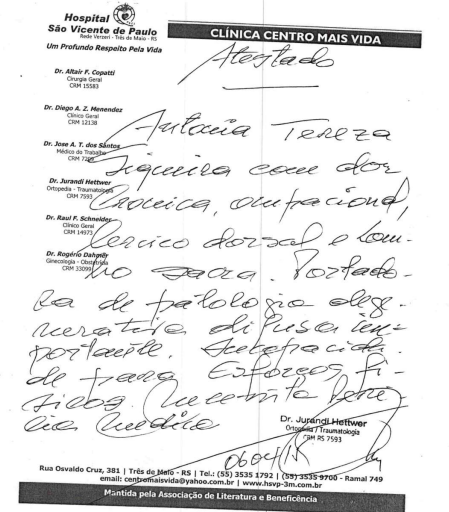 Hospital
São Vicente de Paulo
Rede Verzeri - Três de Maio - RS
Um Profundo Respeito Pela Vida
CLÍNICA CENTRO MAIS VIDA
Atestado
Dr. Altair F. Copatti
Cirurgia Geral
CRM 15583
Dr. Diego A. Z. Menendez
Clínico Geral
CRM 12138
Dr. Jose A. T. dos Santos
Médico do Trabalho
CRM
Dr. Jurandi Hettwer
Ortopedia - Traumatologia
CRM 7593
Dr. Raul F. Schneider
Clínico Geral
CRM 14973
Dr. Rogério Dahmer
Ginecologia - Obstetrícia
CRM 33099
Antonia Tereza
Siqueira com dor
Cronica,
Cervico dorsal e lom-
bo sacra. Portado-
ra de patologia dege-
nerativa difusa im-
portante.
de para Esforços fí-
sicos. Necessita
médica
Dr. Jurandi Hettwer
Ortopedia / Traumatologia
CRM RS 7593
Rua Osvaldo Cruz, 381 | Três de Maio - RS | Tel.: (55) 3535 1792 | (55) 3535 9700 - Ramal 749
email: centromaisvida@yahoo.com.br | www.hsvp-3m.com.br
Mantida pela Associação de Literatura e Beneficência